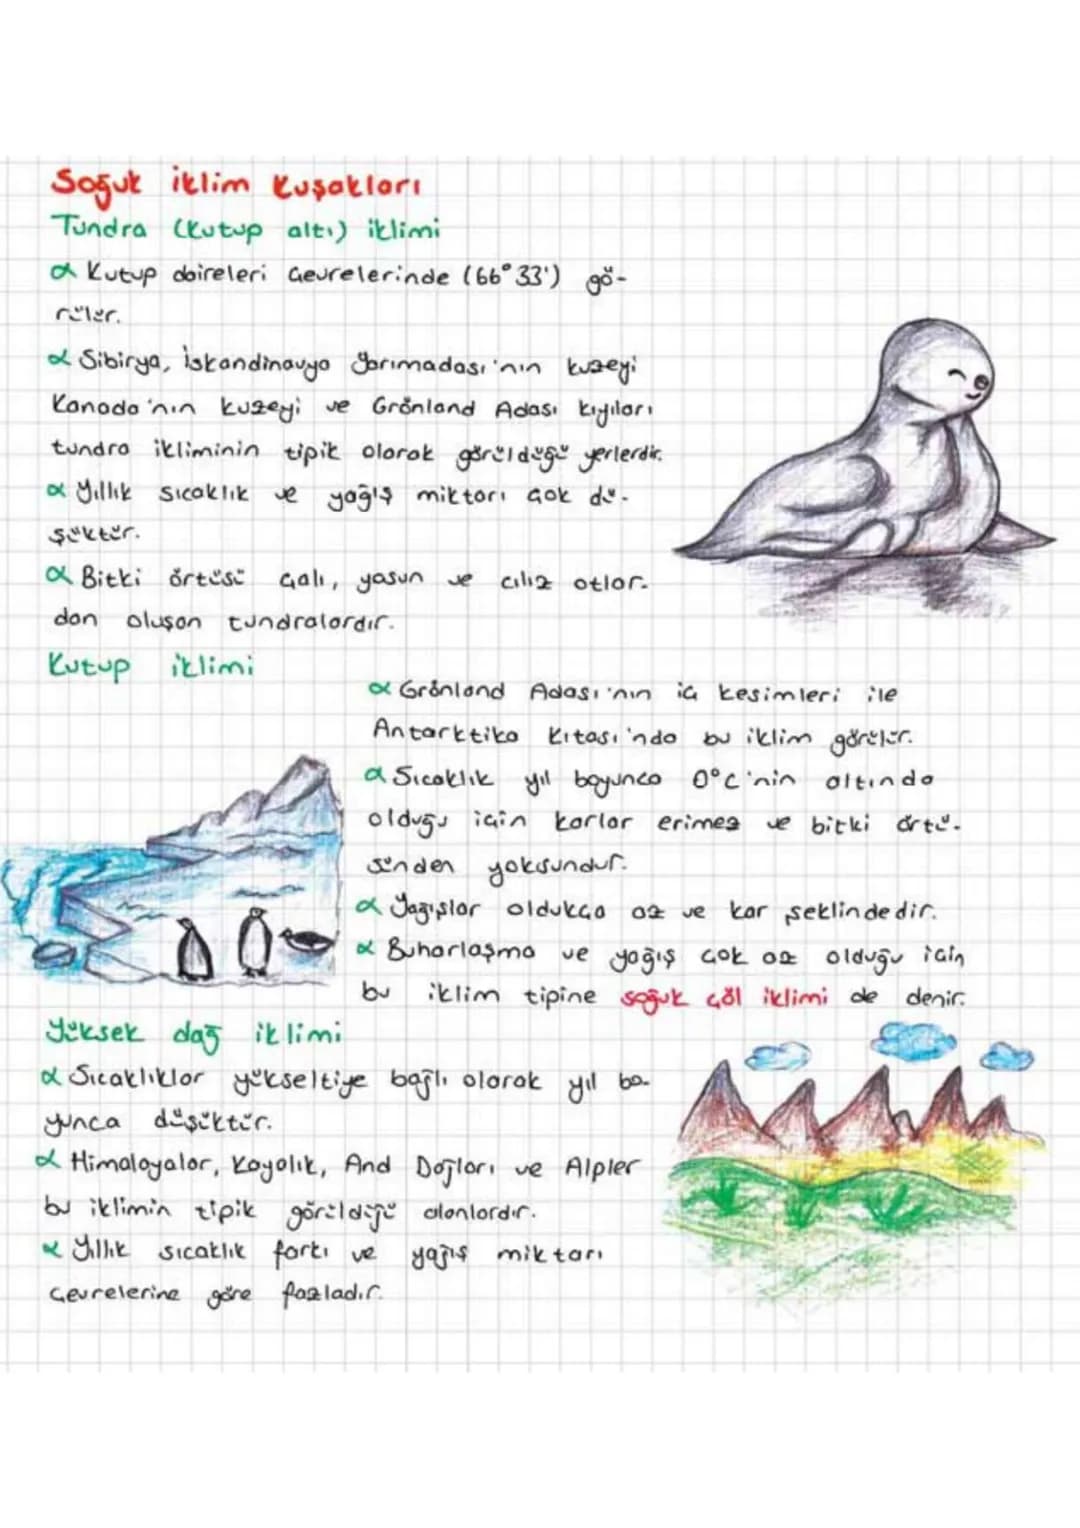 Soğuk iklim kuşakları
Tundra (Kutup altı) iklimi
α Kutup daireleri çevrelerinde (66° 33') gö-
rülür.
α Sibirya, İskandinavya Yarımadası'nın kuzeyi
Kanada'nın kuzeyi ve Grönland Adası kıyıları
tundra ikliminin tipik olarak görüldüğü yerlerdir.
α Yıllık sıcaklık ve yağış miktarı çok dü-
şüktür.
α Bitki örtüsü çalı, yosun ve cılız otlar-
dan oluşan tundralardır.
Kutup iklimi
α Grönland Adası'nın iç kesimleri ile
Antarktika Kıtası'nda bu iklim görülür.
α Sıcaklık yıl boyunca 0°C'nin altında
olduğu için karlar erimez ve bitki örtü-
sünden yoksundur.
α Yağışlar oldukça az ve kar şeklindedir.
α Buharlaşma ve yağış çok az olduğu için
bu iklim tipine soğuk çöl iklimi de denir.
Yüksek dağ iklimi
α Sıcaklıklar yükseltiye bağlı olarak yıl bo-
yunca düşüktür.
α Himalayalar, Kayalık, And Dağları ve Alpler
bu iklimin tipik görüldüğü alanlardır.
α Yıllık sıcaklık farkı ve yağış miktarı
çevrelerine göre fazladır.